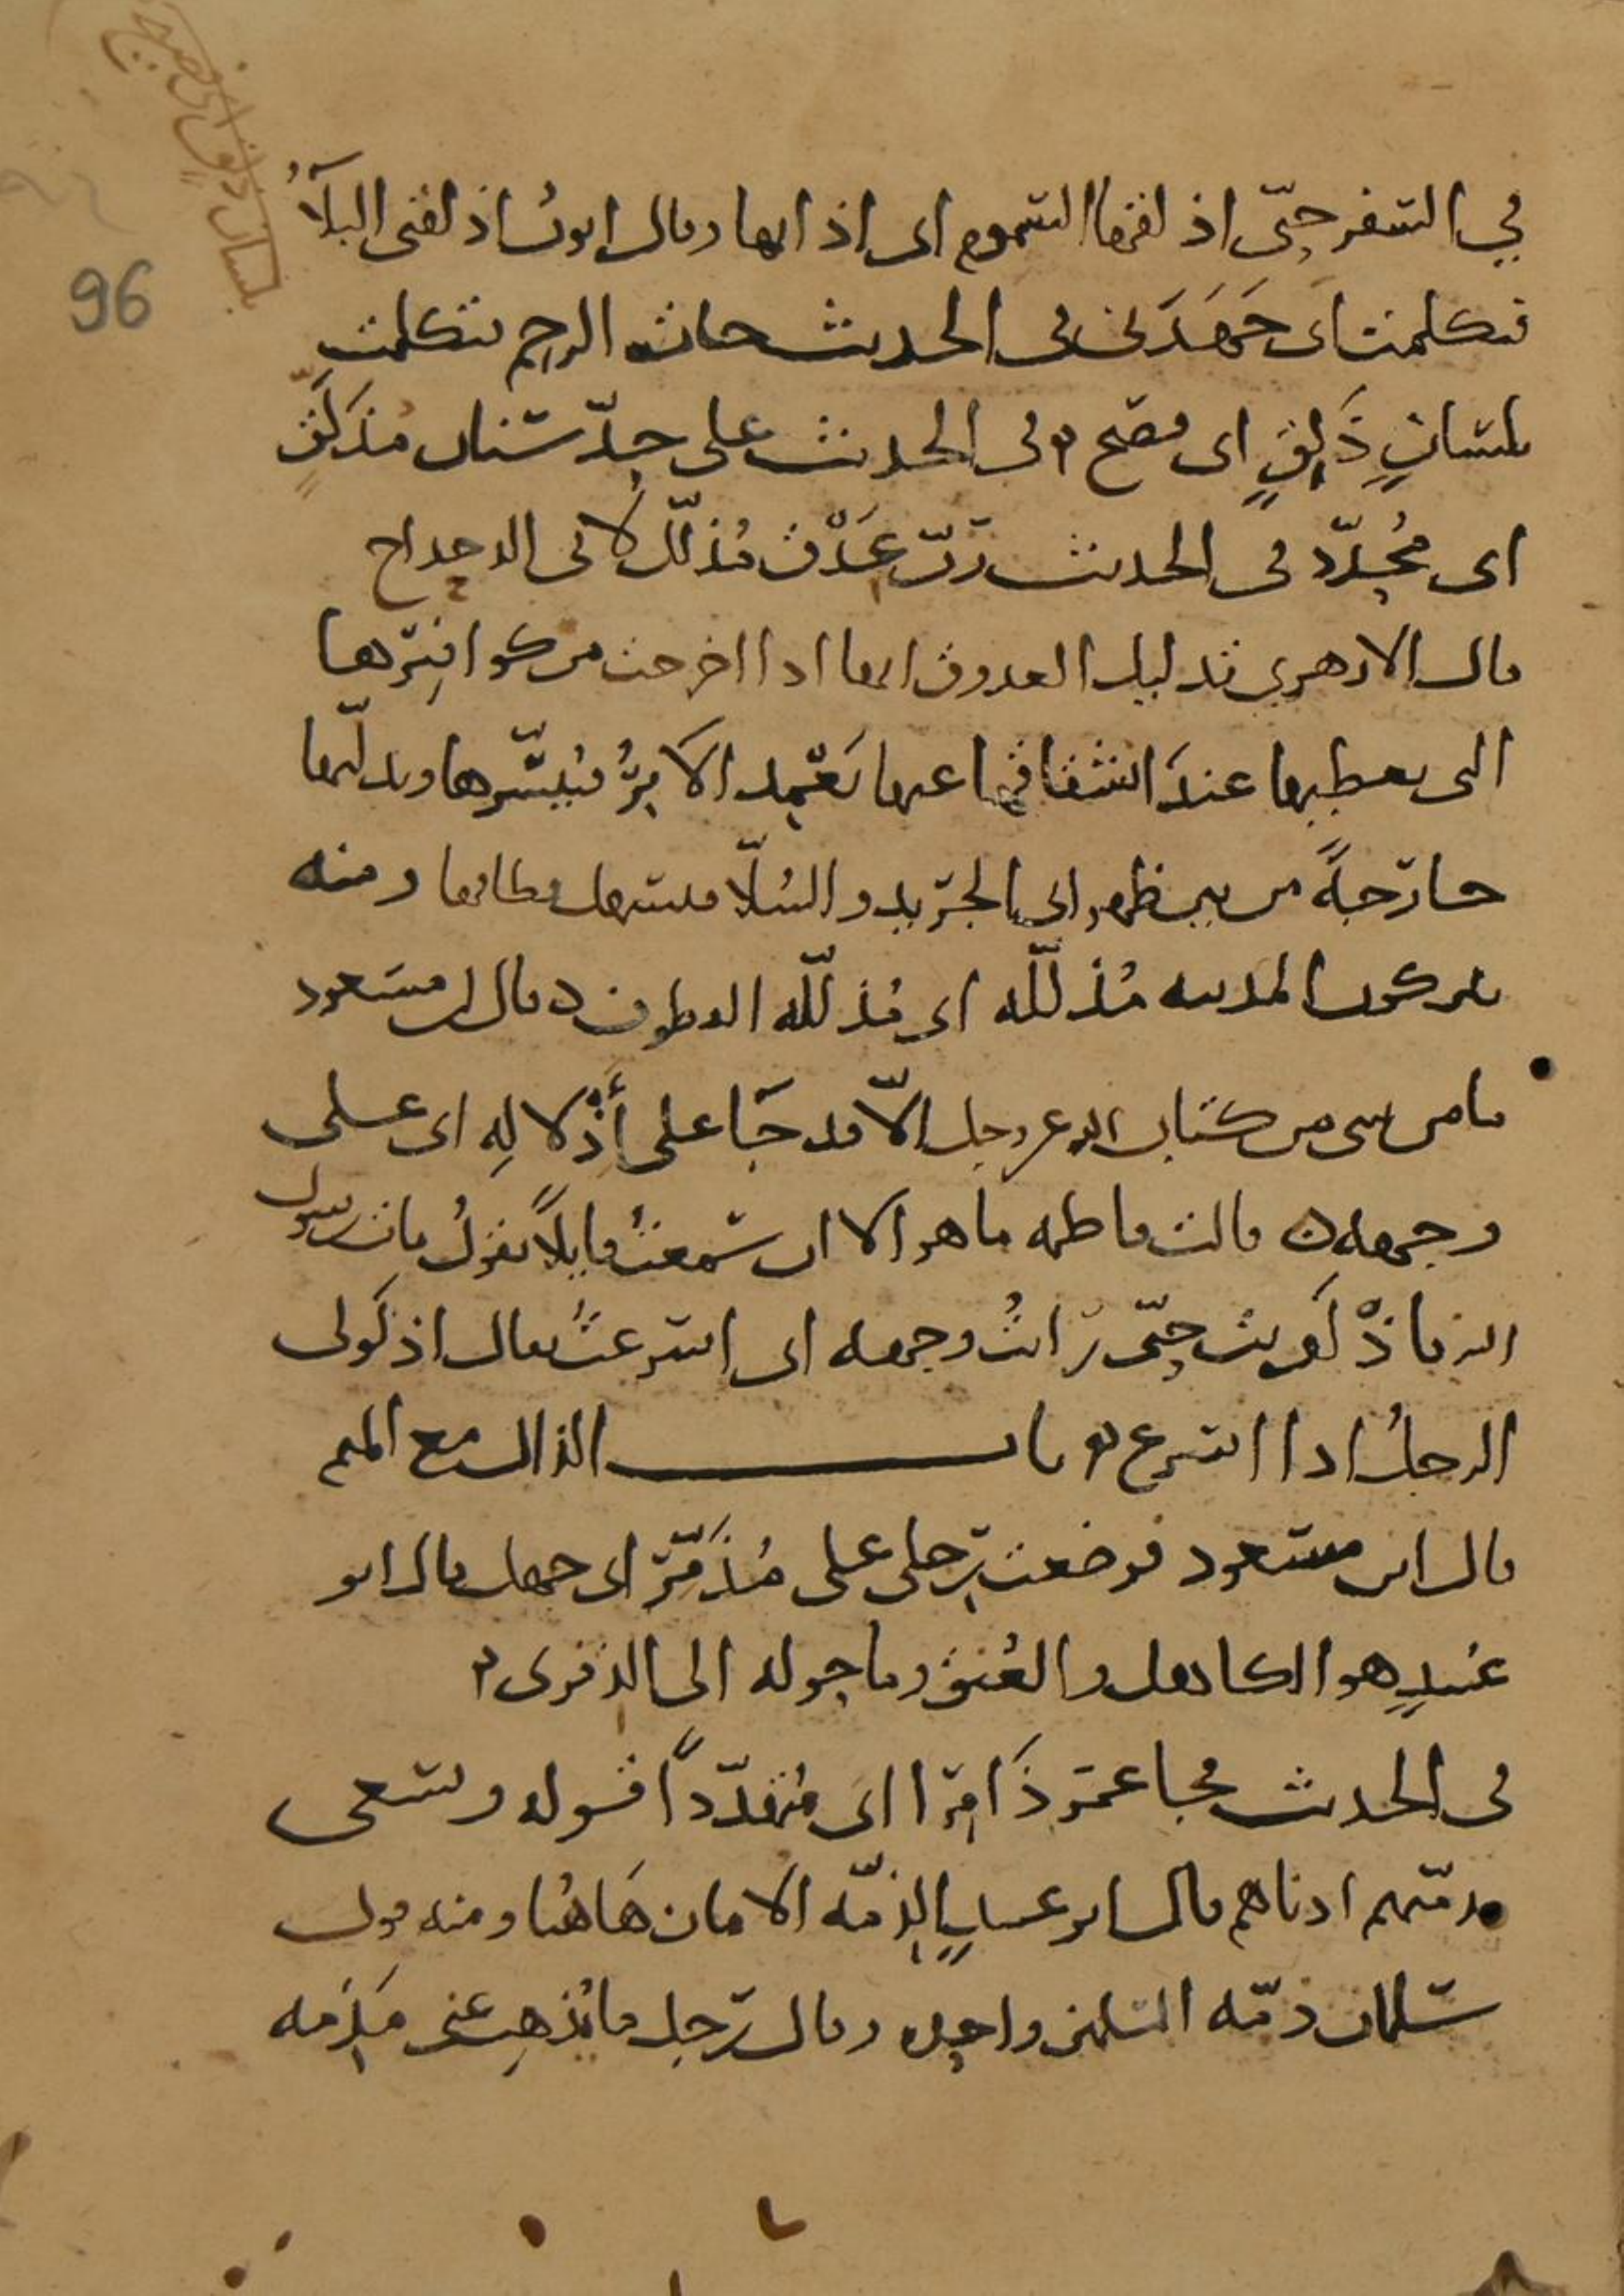 بلسان ذلق اى فصيح
96
في السفر حتى اذلقها السموم اى اذابها وقال ايوب اذلقنى البلاء
فتكلمت اى جَهَدَنى فى الحديث جات الرحم فتكلمت
بلسانٍ ذَلِقٍ اى فصيح وفى الحديث على حدّ سنان مُذَلَّقٍ
اى مُحدّد فى الحديث ربّ عَذْق مُذلّل لابى الدحداح
قال الازهري تذليل العذوق انها اذا اخرجت من كوافِيْرها
التى تغطيها عندَ انشقاقها عنها يَعْمِد الآبِرُ فيُيَسّرها ويدلّيها
خارجةً من بين ظهرانى الجريد والسُلّاء فيسهل قطافها ومنه
يتركون المدينه مُذلّله اى مُذلّله القطوف وقال ابن مسعود
ما من شى من كتاب الله عز وجل الّا وقد جَا على أذْلالِه اى على
وجهه قالت فاطمه ما هو الا ان سمعتُ قايلاً يقولُ مات رسول
الله فاذْلَوليت حتّى رايتُ وجهه اى اسرعتُ يقال اذلَولى
الرجلُ اذا اسرع باب الذال مع الميم
قال ابن مسعود فوضعت رجلى على مُذَمَّر ابى جهل قال ابو
عُبيدٍ هو الكاهل والعُنق وما حوله الى الذفرى
فى الحديث فجا عمر ذَامِرا اى متهدّداً قوله ويسعى
بذمّتهم ادناهم قال ابو عبيدٍ الذمّه الامان هَاهُنا ومنه قول
سلمان ذمّه المسلمين واحده وقال رجل ما يُذهِب عنى مَذِمّه